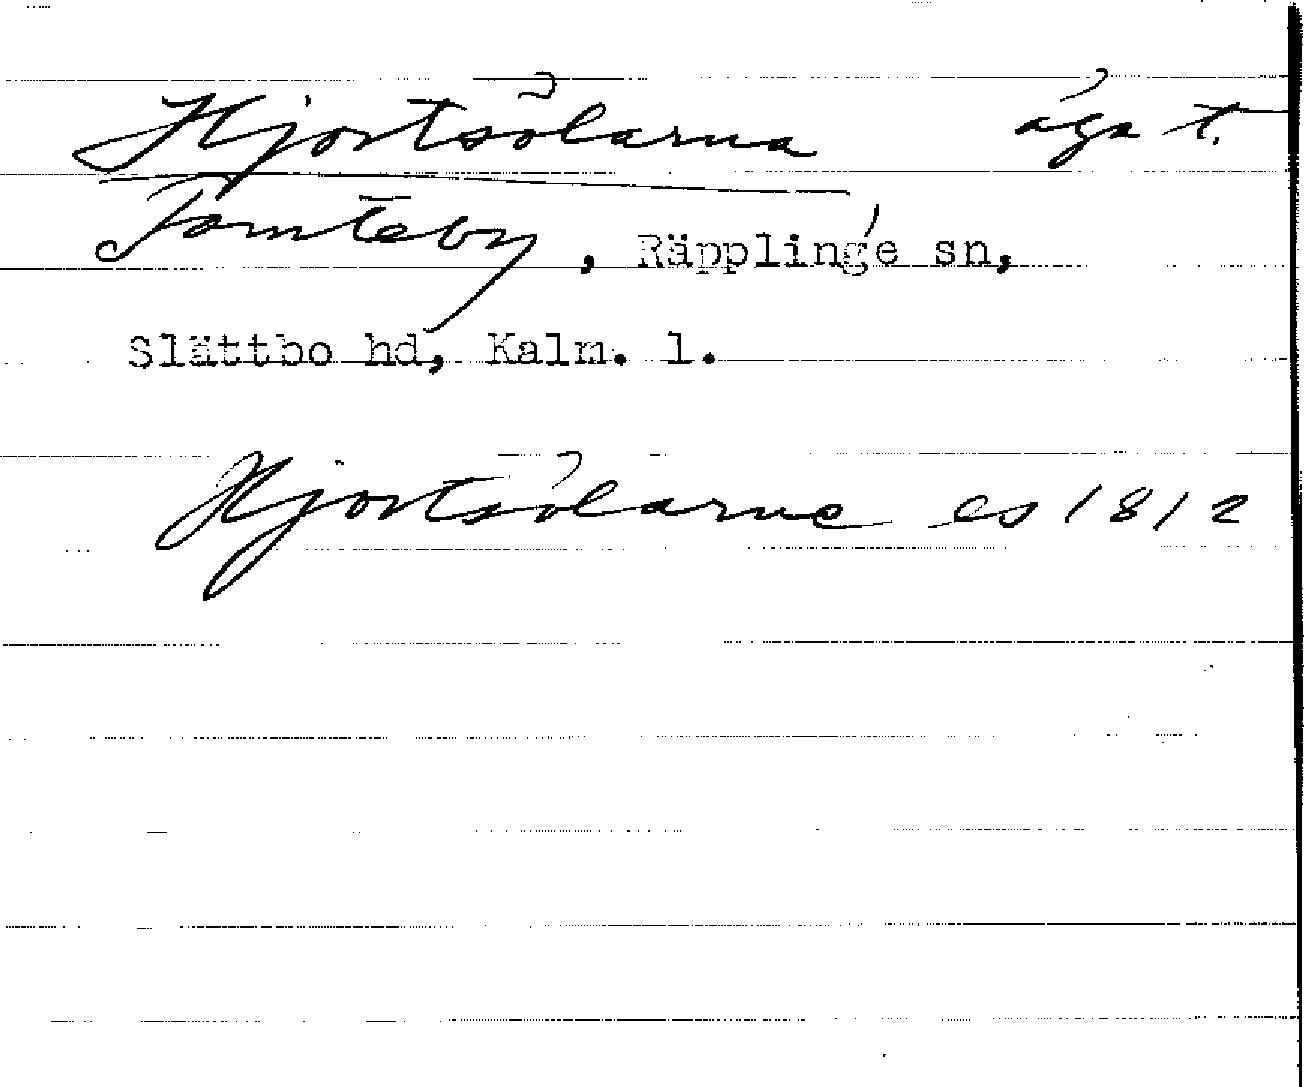 Hjortsölarna äga t.
Tomteby, Räpplinge sn,
Slättbo hd, Kalm. l.
Hjortsölarne es 1812